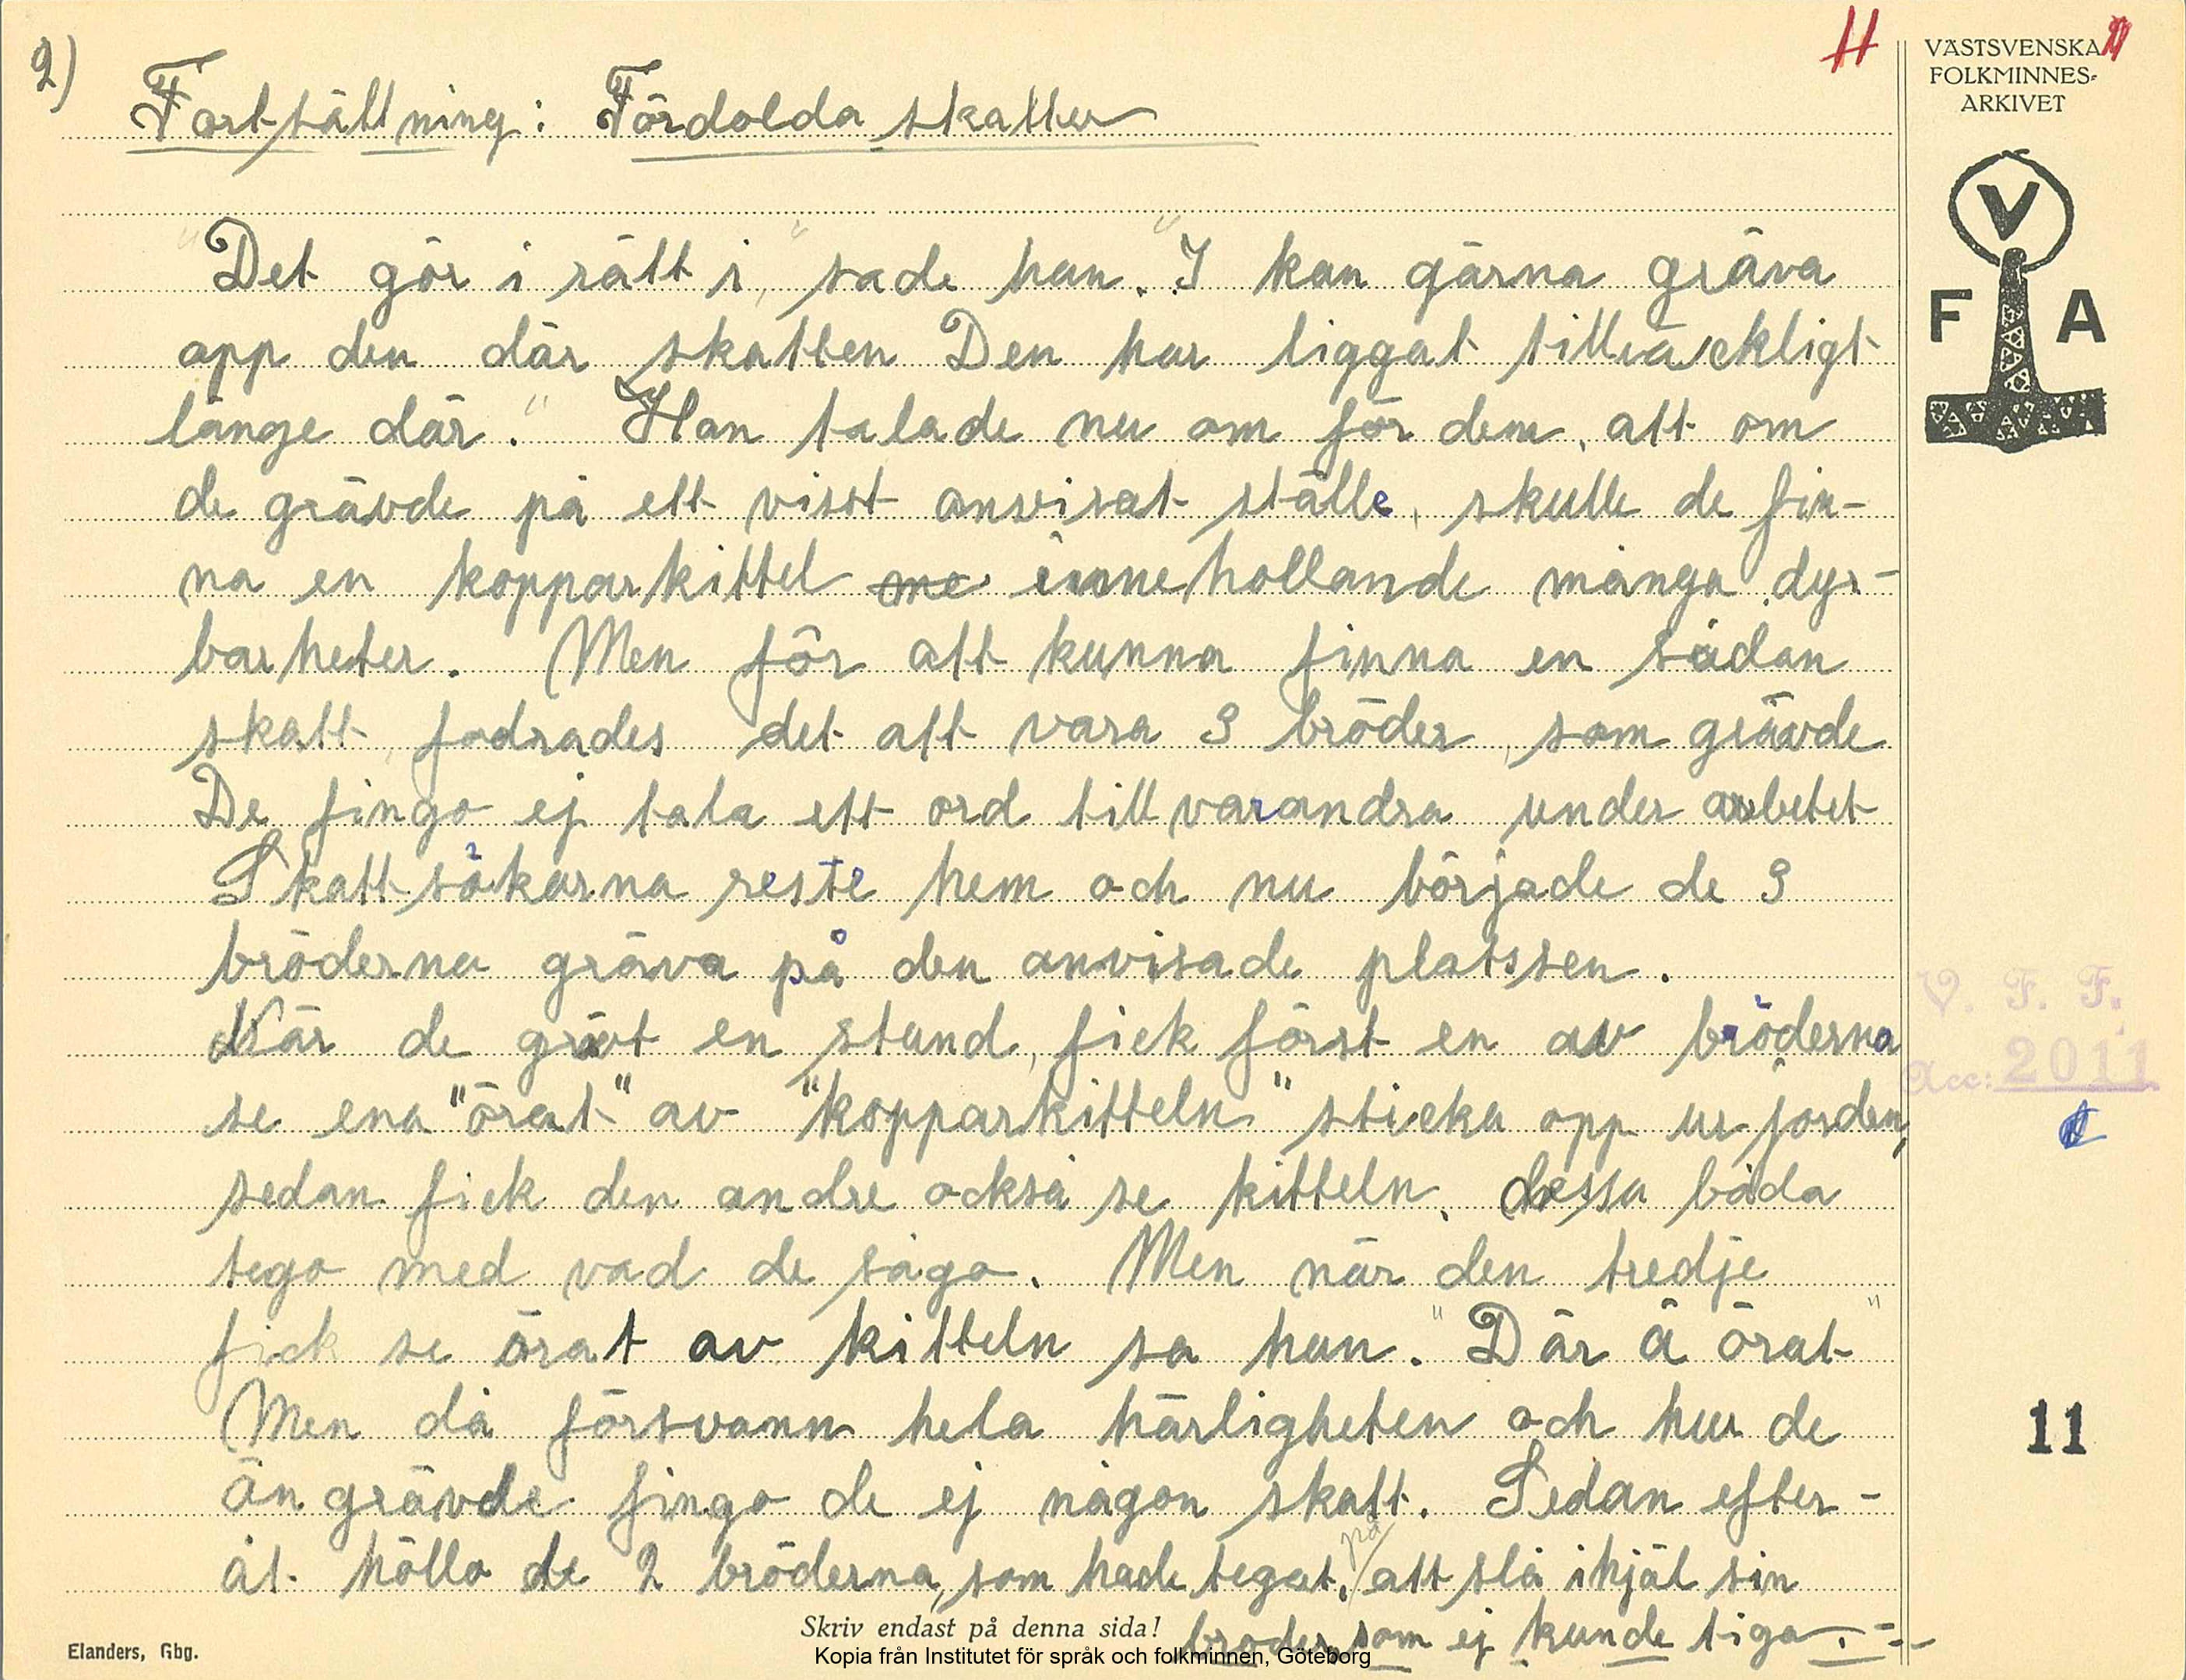 2)
Fortsättning: Fördolda skatter
11
VÄSTSVENSKA
FOLKMINNES-
ARKIVET
V
F A
"Det gör i rätt i," sade han. "I kan gärna gräva
opp den där skatten Den har legat tillräckligt
länge där." Han talade nu om för dem, att om
de grävde på ett visst anvisat ställe, skulle de fin-
na en kopparkittel me innehollande många dyr-
barheter. Men för att kunna finna en sådan
skatt, fodrades det att vara 3 bröder, som grävde
De fingo ej tala ett ord till varandra under arbetet
Skattsökarna reste hem och nu började de 3
bröderna gräva på den anvisade platssen.
När de grävt en stund, fick först en av bröderna
se ena "örat" av "kopparkitteln" sticka opp ur jorden,
sedan fick den andre också se kitteln, dessa båda
tego med vad de sågo. Men när den tredje
fick se örat av kitteln sa han. "Där ä örat"
Men då försvann hela härligheten och hur de
än grävde fingo de ej någon skatt. Sedan efter-
åt höllo de 2 bröderna, som hade tegat, på att slå ihjäl sin
broder som ej kunde tiga. - - -
V. F. F.
Acc: 2011
11
Skriv endast på denna sida!
Elanders, Gbg.
Kopia från Institutet för språk och folkminnen, Göteborg